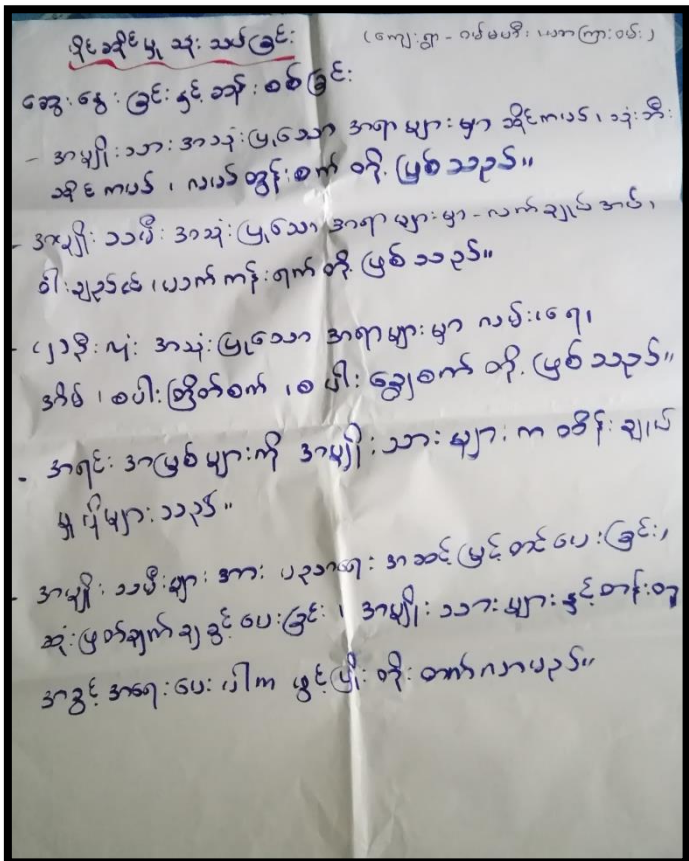 ပိုင်ဆိုင်မှု သုံးသပ်ခြင်း
(ကျေးရွာ - ဂပ်မဟီး ယာကြားဝမ်း)
ဆွေးနွေးခြင်းနှင့် ဆန်းစစ်ခြင်း
- အမျိုးသား အသုံးပြုသော အရာများမှာ ဆိုင်ကယ်၊ သုံးဘီး
ဆိုင်ကယ်၊ လယ်ထွန်းစက် တို့ ဖြစ်သည်။
- အမျိုးသမီး အသုံးပြုသော အရာများမှာ - လက်ချုပ်အပ်၊
ဝါးချည်ငယ်၊ ယက်ကန်းရက် တို့ ဖြစ်သည်။
- ၂ဦးလုံး အသုံးပြုသော အရာများမှာ လမ်း၊ ရေ၊
အိမ်၊ စပါးကြိတ်စက်၊ စပါးခြွေစက် တို့ ဖြစ်သည်။
- အရင်းအမြစ်များကို အမျိုးသားများက ထိန်းချုပ်
မှု ပိုများသည်။
- အမျိုးသမီးများအား ပညာရေး အဆင့်မြှင့်တင်ပေးခြင်း၊
ဆုံးဖြတ်ချက်ချခွင့်ပေးခြင်း၊ အမျိုးသားများနှင့်တန်းတူ
အခွင့်အရေးပေးပါက ဖွင့်ဖြိုးတိုးတက်လာမည်။